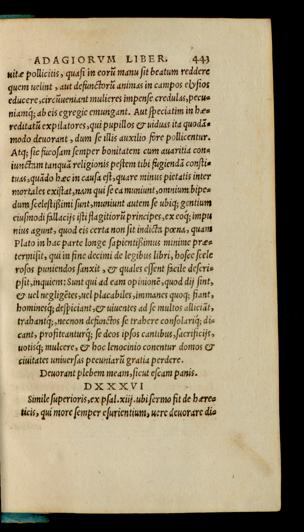 ADAGIORVM LIBER. 443
uitæ pollicitis, quasi in eorũ manu sit beatum reddere
quem uelint, aut defunctorũ animas in campos elysios
educere, circũueniant mulieres impense credulas, pecu-
niamq́; ab eis egregie emungant. Aut speciatim in hæ-
reditatũ expilatores, qui pupillos & uiduas ita quodã-
modo deuorant, dum se illis auxilio fore pollicentur.
Atq; sic fucosam semper bonitatem cum auaritia con-
iunctam tanquã religionis pestem tibi fugiendã consti-
tuas, quãdo hæc in causa est, quare minus pietatis inter
mortales existat, nam qui se ea muniunt, omnium bipe-
dum scelestißimi sunt, muniunt autem se ubiq; gentium
eiusmodi fallacijs isti flagitiorũ principes, ex eoq; impu
nius agunt, quod eis certa non sit indicta pœna, quam
Plato in hac parte longe sapientißimus minime præ-
termisit, qui in fine decimi de legibus libri, hosce scele
rosos puniendos sanxit, & quales essent facile descri-
psit, inquiem: Sunt qui ad eam opinionẽ, quod dij sint,
& uel negligẽtes, uel placabiles, immanes quoq; fiant,
hominesq; despiciant, & uiuentes ad se multos alliciãt,
trahantq;, necnon defunctos se trahere consolariq; di-
cant, profiteanturq; se deos ipsos cantibus, sacrificijs,
uotisq; mulcere, & hoc lenocinio conentur domos &
ciuitates uniuersas pecuniarũ gratia perdere.
Deuorant plebem meam, sicut escam panis.
DXXXVI
Simile superioris, ex psal. xiij. ubi sermo fit de hære-
ticis, qui more semper esurientium, uere deuorare di-